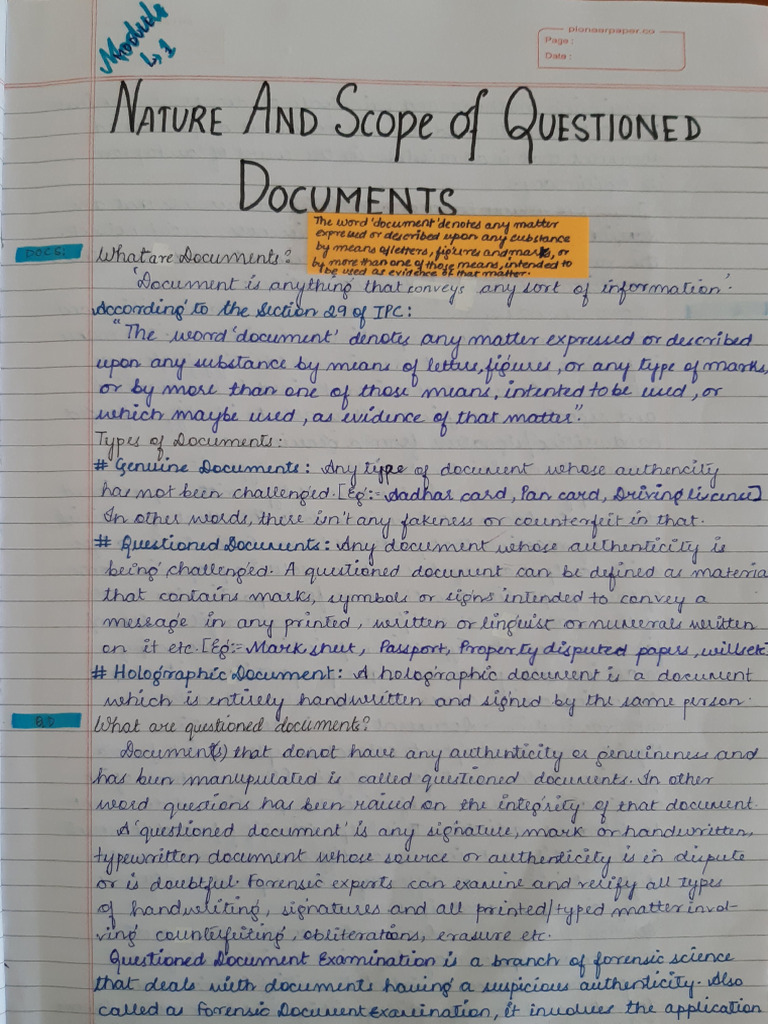 Module
↳ 1
pioneerpaper.co
Page :
Date :
NATURE AND SCOPE of QUESTIONED
DOCUMENTS
The word 'document' denotes any matter
expressed or described upon any substance
by means of letters, figures and marks, or
by more than one of those means, intended to
be used as evidence of that matter.
DOCS:
What are Documents?
'Document is anything that conveys any sort of information'.
According to the Section 29 of IPC:
"The word 'document' denotes any matter expressed or described
upon any substance by means of letters, figures, or any type of marks,
or by more than one of those means, intented to be used, or
which maybe used, as evidence of that matter".
Types of Documents:
# Genuine Documents: Any type of document whose authencity
has not been challenged. [Eg:- Aadhar card, Pan card, Driving licence]
In other words, there isn't any fakeness or counterfeit in that.
# Questioned Documents: Any document whose authenticity is
being challenged. A questioned document can be defined as materia
that contains marks, symbols or signs intended to convey a
message in any printed, written or linguist or numerals written
on it etc. [Eg:- Mark sheet, Passport, Property disputed papers, wills etc
# Holographic Document: A holographic document is a document
which is entirely handwritten and signed by the same person.
Q.D
What are questioned documents?
Document(s) that donot have any authenticity or genuineness and
has been manupulated is called questioned documents. In other
word questions has been raised on the integrity of that document.
A 'questioned document' is any signature, mark or handwritten,
typewritten document whose source or authenticity is in dispute
or is doubtful. Forensic experts can examine and verify all types
of handwriting, signatures and all printed/typed matter invol-
ving counterfeiting, obliterations, erasure etc.
Questioned Document Examination is a branch of forensic science
that deals with documents having a suspicious authenticity. Also
called as Forensic Document Examination, it involves the application